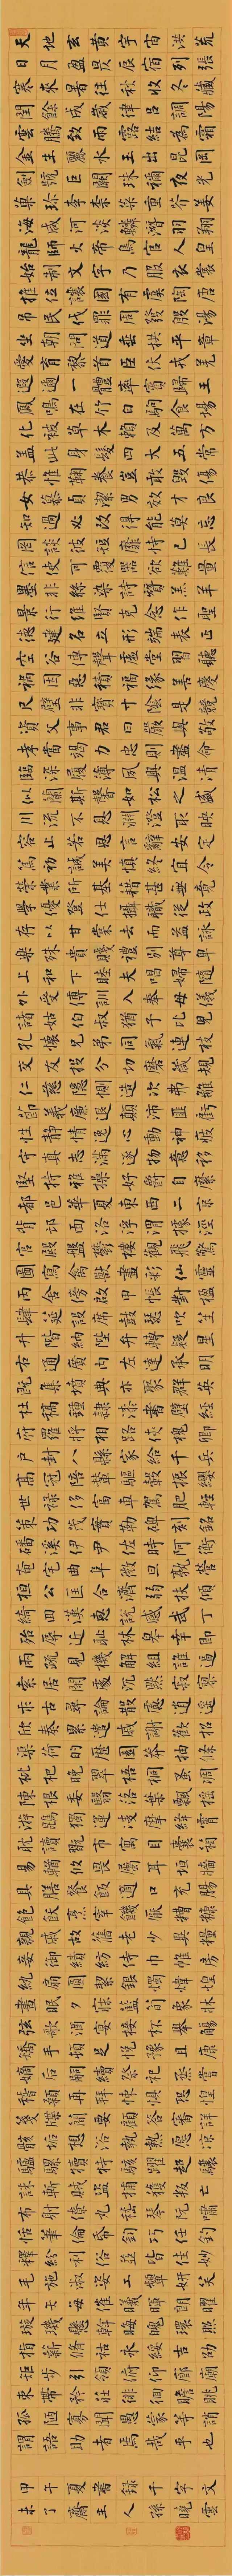 天地玄黃宇宙洪荒
日月盈昃辰宿列張
寒來暑往秋收冬藏
閏餘成歲律吕調陽
雲騰致雨露結為霜
金生麗水玉出崑岡
劍號巨闕珠稱夜光
菓珍李柰菜重芥薑
海鹹河淡鱗潛羽翔
龍師火帝鳥官人皇
始制文字乃服衣裳
推位讓國有虞陶唐
弔民伐罪周發殷湯
坐朝問道垂拱平章
愛育黎首臣伏戎羌
遐邇一體率賓歸王
鳴鳳在竹白駒食場
化被草木賴及萬方
蓋此身髮四大五常
恭惟鞠養豈敢毀傷
女慕貞潔男效才良
知過必改得能莫忘
罔談彼短靡恃己長
信使可覆器欲難量
墨悲絲染詩讚羔羊
景行維賢克念作聖
德建名立形端表正
空谷傳聲虛堂習聽
禍因惡積福緣善慶
尺璧非寶寸陰是競
資父事君曰嚴與敬
孝當竭力忠則盡命
臨深履薄夙興温凊
似蘭斯馨如松之盛
川流不息淵澄取映
容止若思言辭安定
篤初誠美慎終宜令
榮業所基籍甚無竟
學優登仕攝職從政
存以甘棠去而益詠
樂殊貴賤禮別尊卑
上和下睦夫唱婦隨
外受傅訓入奉母儀
諸姑伯叔猶子比兒
孔懷兄弟同氣連枝
交友投分切磨箴規
仁慈隱惻造次弗離
節義廉退顛沛匪虧
性靜情逸心動神疲
守真志滿逐物意移
堅持雅操好爵自縻
都邑華夏東西二京
背邙面洛浮渭據涇
宮殿盤鬱樓觀飛驚
圖寫禽獸畫彩仙靈
丙舍傍啟甲帳對楹
肆筵設席鼓瑟吹笙
升階納陛弁轉疑星
右通廣內左達承明
既集墳典亦聚群英
杜稿鍾隸漆書壁經
府羅將相路俠槐卿
戶封八縣家給千兵
高冠陪輦驅轂振纓
世祿侈富車駕肥輕
策功茂實勒碑刻銘
磻溪伊尹佐時阿衡
奄宅曲阜微旦孰營
桓公匡合濟弱扶傾
綺迴漢惠說感武丁
殆辱近恥林皋幸即
兩疏見機解組誰逼
索居閑處沉默寂寥
求古尋論散慮逍遙
欣奏累遣慼謝歡招
渠荷的歷園莽抽條
枇杷晚翠梧桐蚤凋
陳根委翳落葉飄颻
游鵾獨運凌摩絳霄
耽讀翫市寓目囊箱
易輶攸畏屬耳垣牆
具膳餐飯適口充腸
飽飫烹宰飢厭糟糠
親戚故舊老少異糧
妾御績紡侍巾帷房
紈扇圓潔銀燭煒煌
晝眠夕寐藍筍象床
弦歌酒宴接杯舉觴
矯手頓足悅豫且康
嫡後嗣續祭祀烝嘗
稽顙再拜悚懼恐惶
箋牒簡要顧答審詳
骸垢想浴執熱願涼
驢騾犢特駭躍超驤
誅斬賊盜捕獲叛亡
布射僚丸嵇琴阮嘯
恬筆倫紙鈞巧任釣
釋紛利俗並皆佳妙
毛施淑姿工顰妍笑
年矢每催曦暉朗曜
璇璣懸斡晦魄環照
指薪修祜永綏吉劭
矩步引領俯仰廊廟
束帶矜莊徘徊瞻眺
孤陋寡聞愚蒙等誚
謂語助者焉哉乎也
甲午夏書錄千字文
未了齋主人孫曉雲